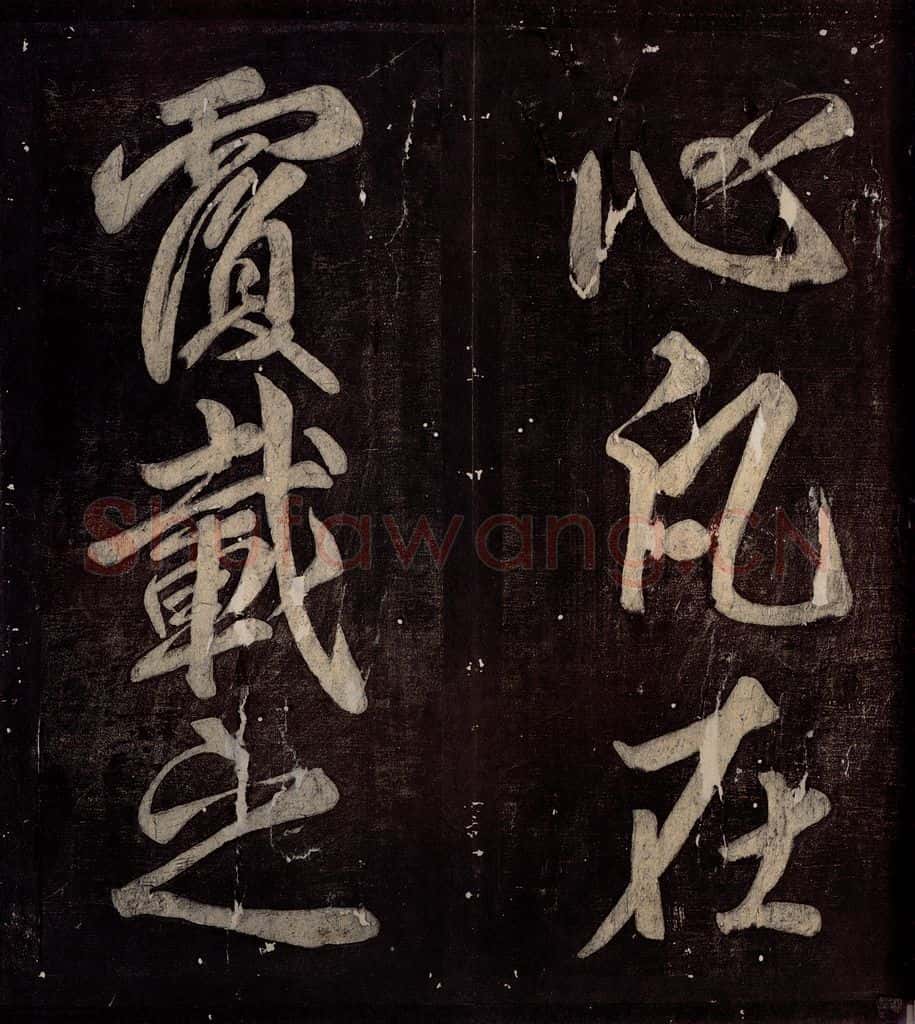 心凡在
覆載之
Shufawang.CN